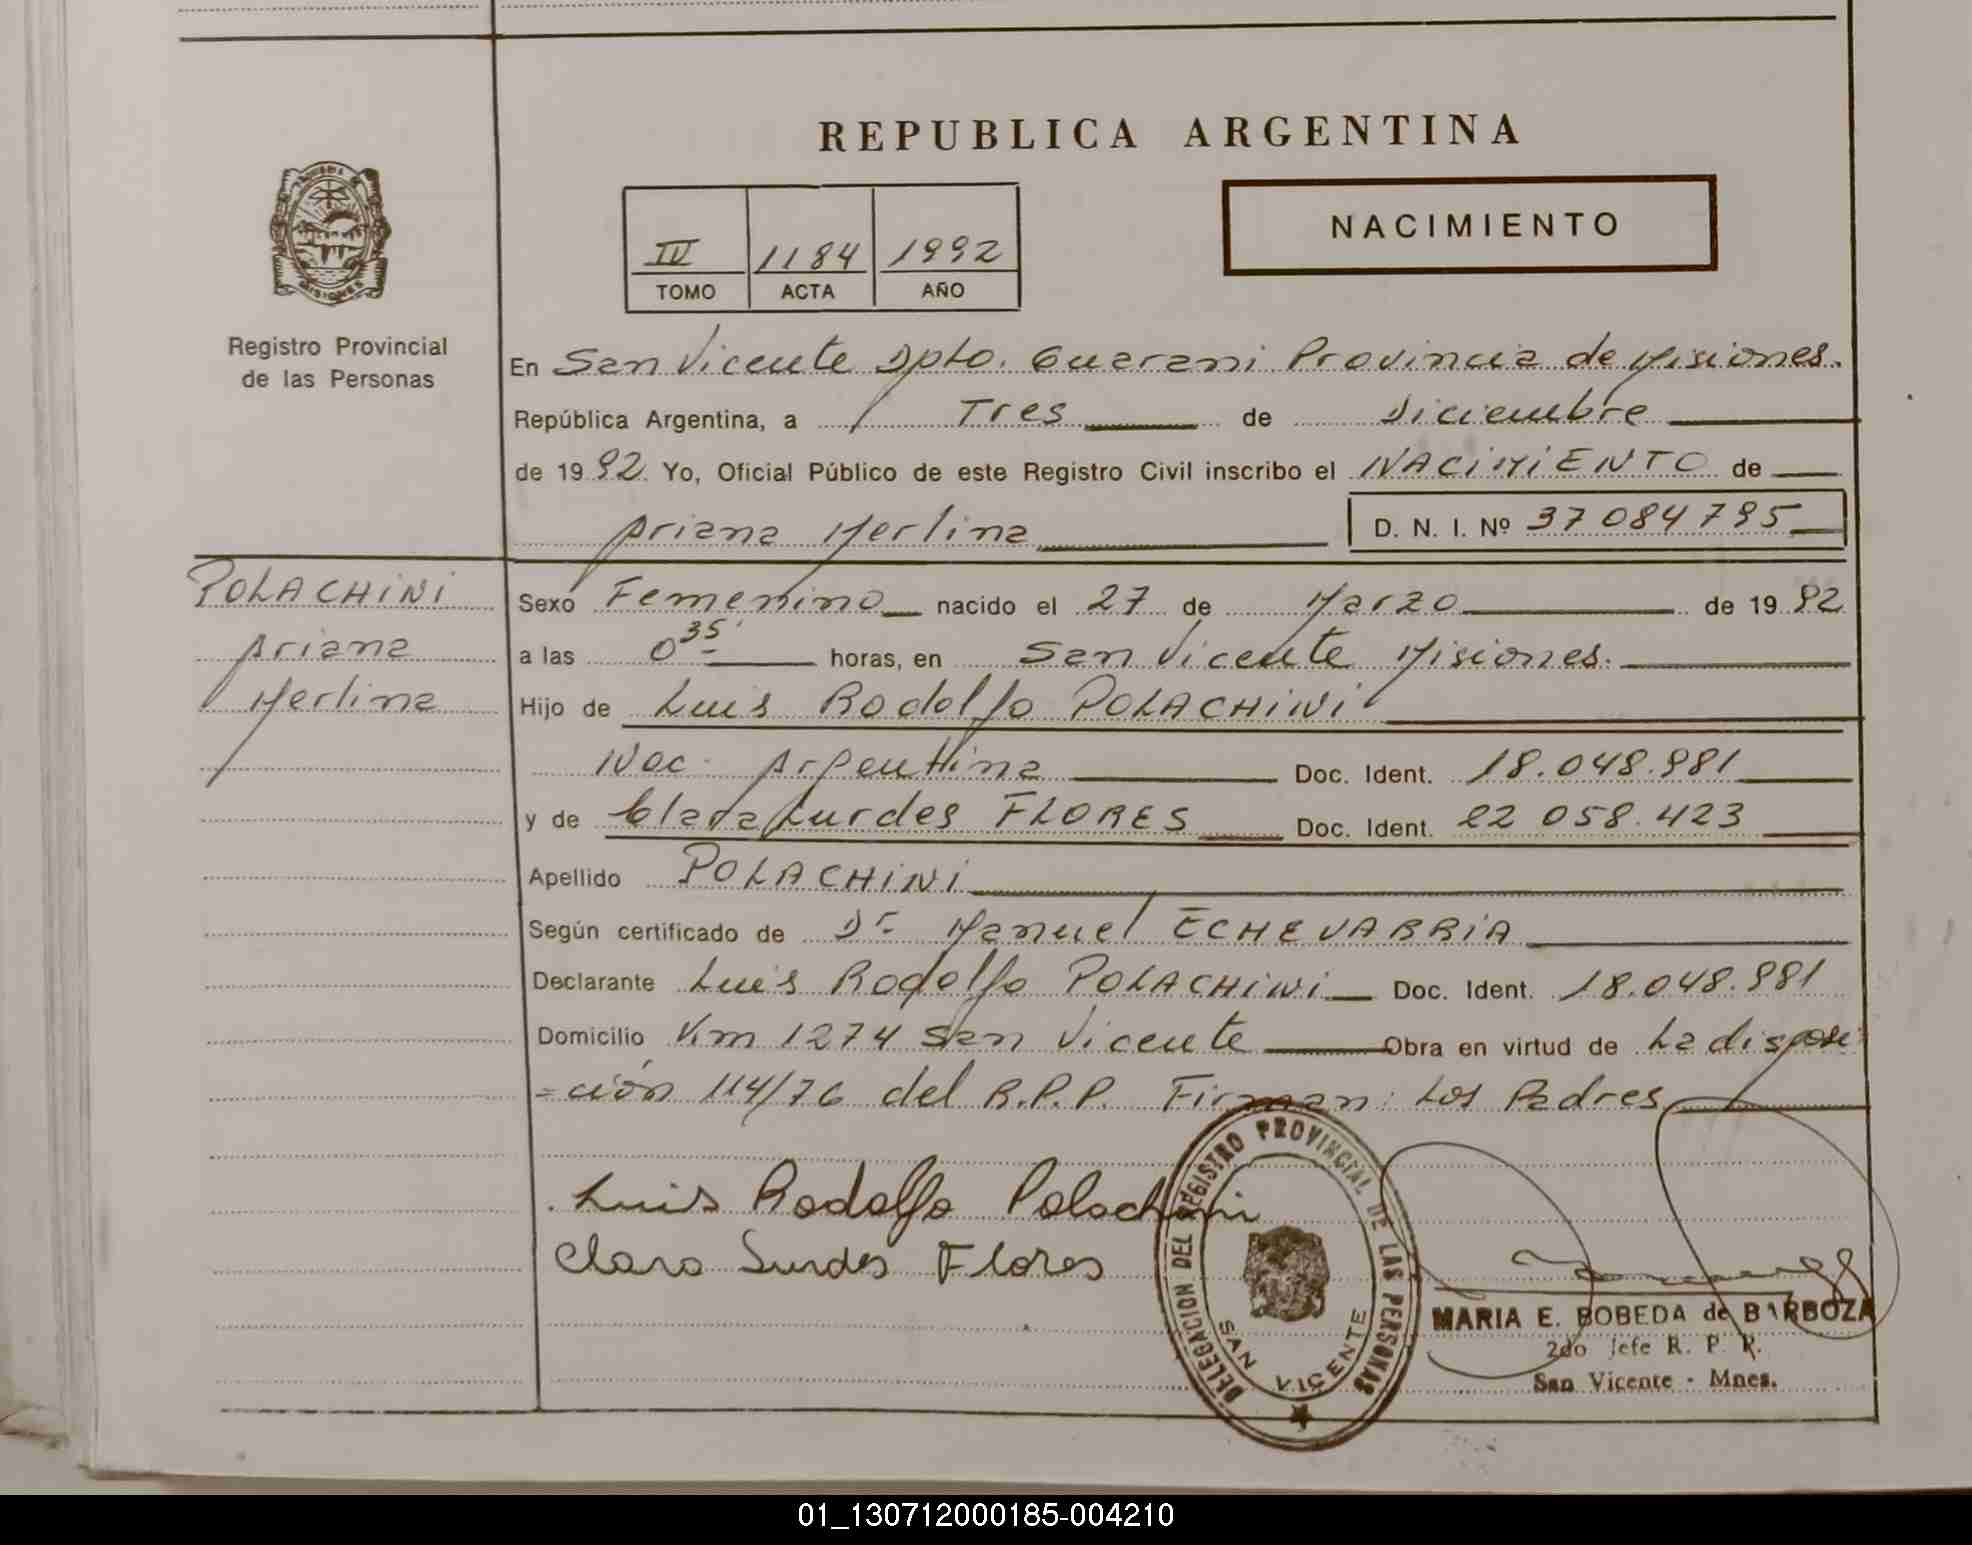 REPUBLICA ARGENTINA
NACIMIENTO
IV 1184 1992
TOMO ACTA AÑO
MISIONES
Registro Provincial
de las Personas
En San Vicente Dpto. Guarani Provincia de Misiones.
República Argentina, a Tres de Diciembre
de 1992 Yo, Oficial Público de este Registro Civil inscribo el NACIMIENTO de
Ariana Merlina D. N. I. Nº 37084795
POLACHINI
Ariana
Merlina
Sexo Femenino nacido el 27 de Marzo de 1992
a las 0 35 horas, en San Vicente Misiones.
Hijo de Luis Rodolfo POLACHINI
Nac. Argentina Doc. Ident. 18.048.981
y de Clara Lurdes FLORES Doc. Ident. 22 058.423
Apellido POLACHINI
Según certificado de Dr Manuel ECHEVARRIA
Declarante Luis Rodolfo POLACHINI Doc. Ident. 18.048.981
Domicilio Km 1274 San Vicente Obra en virtud de La disposi
=ción 114/76 del R.P.P. Firman: Los Padres
Luis Rodolfo Polachini
Clara Lurdes Flores
DELEGACION DEL REGISTRO PROVINCIAL DE LAS PERSONAS
SAN VICENTE
MARIA E. BOBEDA de BARBOZA
2do Jefe R. P. P.
San Vicente - Mnes.
01_130712000185-004210